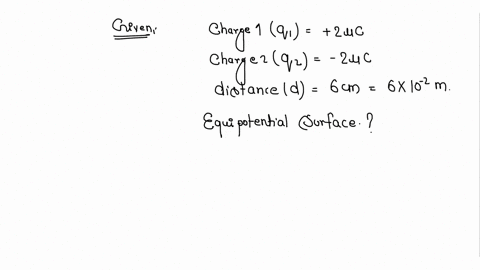 Given, Charge 1 (q₁) = +2μC
Charge 2 (q₂) = -2μC
distance (d) = 6 cm = 6 × 10⁻² m.
Equipotential Surface. ?